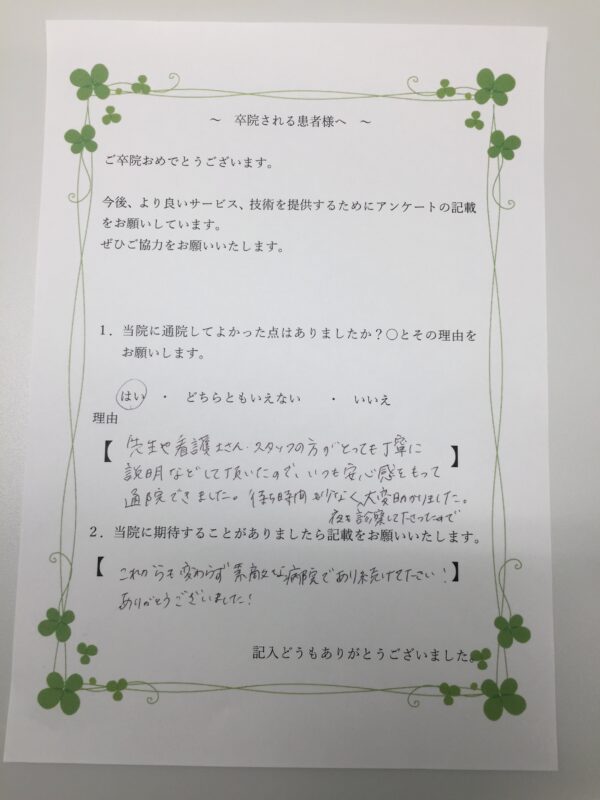 ～ 卒院される患者様へ ～
ご卒院おめでとうございます。
今後、より良いサービス、技術を提供するためにアンケートの記載
をお願いしています。
ぜひご協力をお願いいたします。
1．当院に通院してよかった点はありましたか？○とその理由を
お願いします。
はい ・ どちらともいえない ・ いいえ
理由
【 先生や看護士さん・スタッフの方がとっても丁寧に 】
説明などして頂いたので、いつも安心感をもって
通院できました。待ち時間も少なく、大変助かりました。
夜も診察して下さったので
2．当院に期待することがありましたら記載をお願いいたします。
【 これからも変わらず素敵な病院であり続けて下さい！ 】
ありがとうございました！
記入どうもありがとうございました。